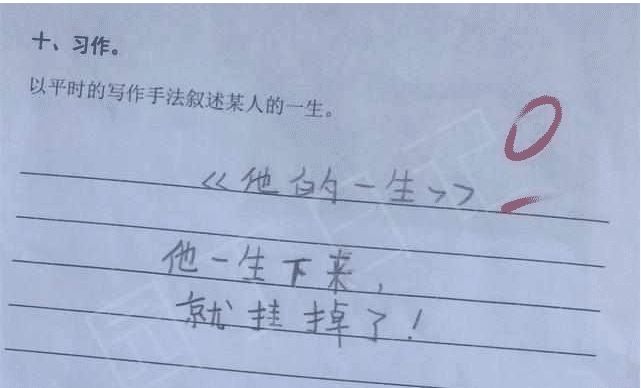 十、习作。
以平时的写作手法叙述某人的一生。
0
《他的一生》
他一生下来，
就挂掉了！